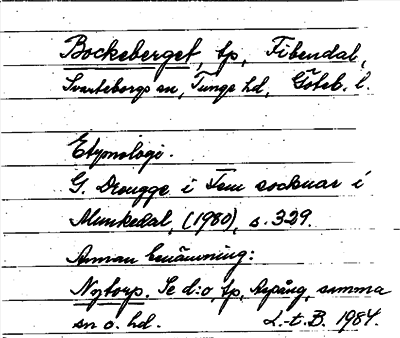 Bockeberget, tp, Fibendal,
Svarteborgs sn, Tunge hd, Göteb. l.
Etymologi.
G. Drougge i Fem socknar i
Munkedal, (1980), s. 329.
Annan benämning:
Nytorp. Se d:o, tp, samma
sn o. hd. L.-t. B. 1984.